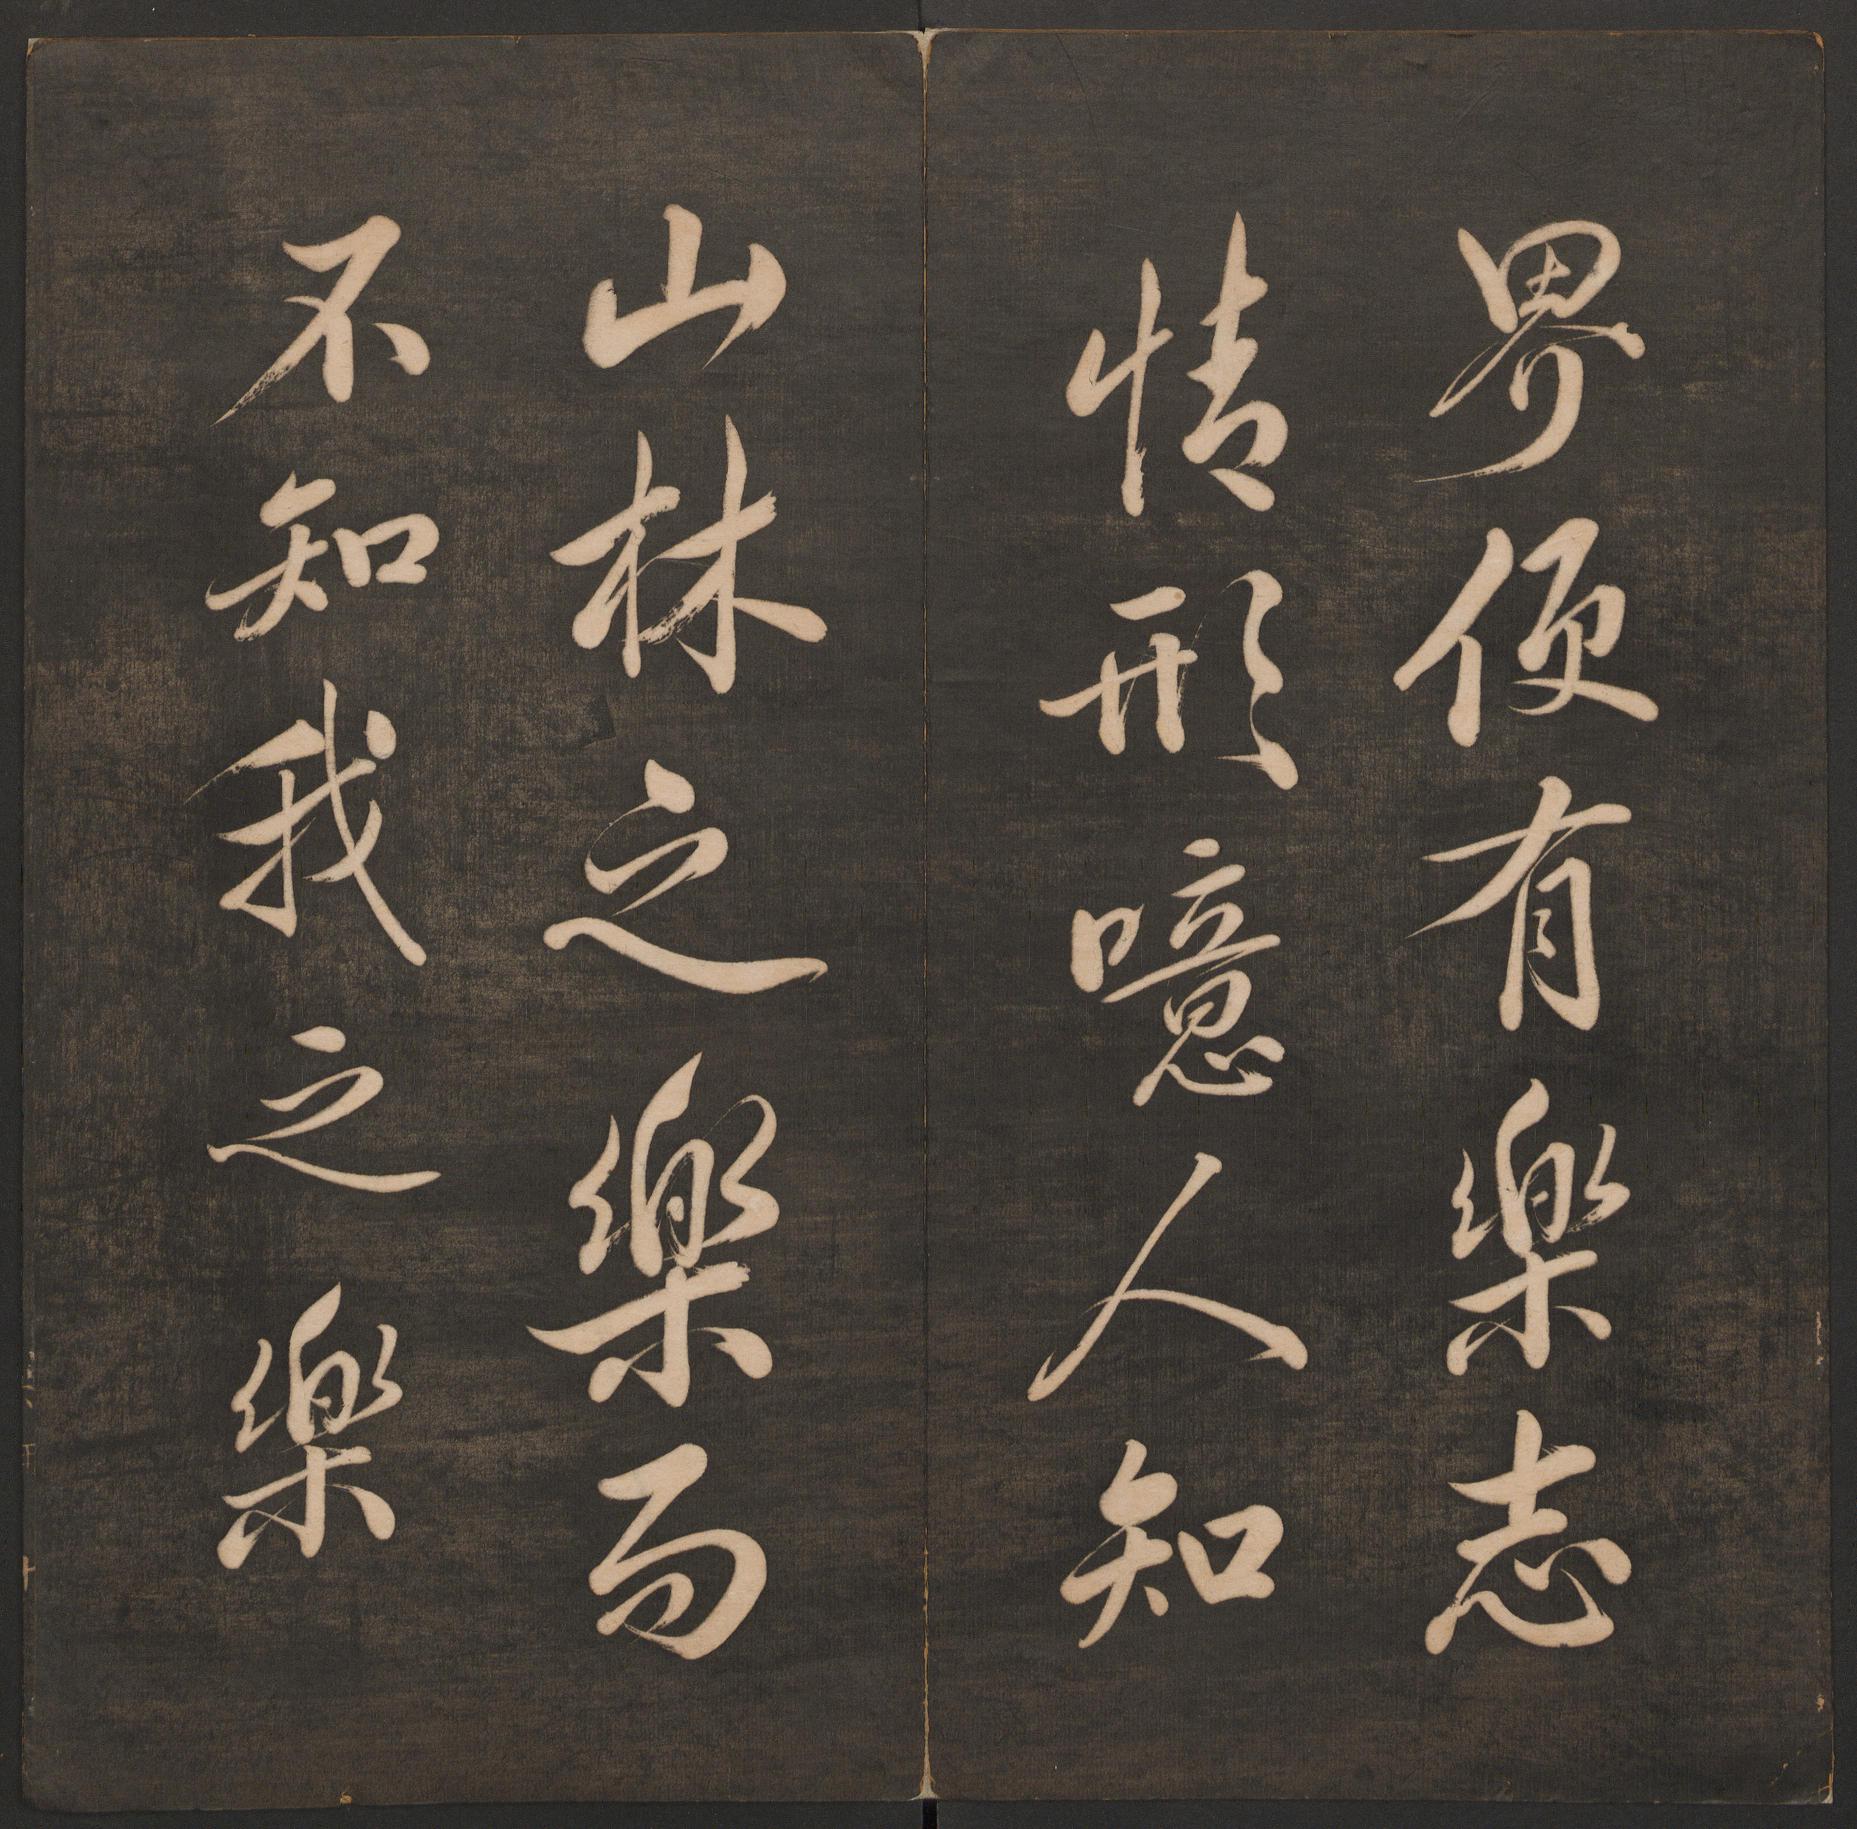 界便有樂志
情形噫人知
山林之樂而
不知我之樂